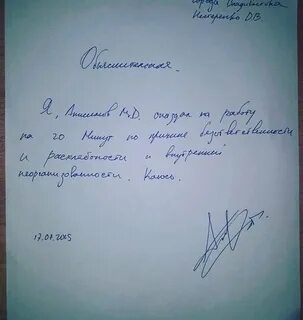 города Владивостока
Нестеренко О.В.
Объяснительная.
Я, Анисимов М.Д. опоздал на работу
на 20 минут по причине безответственности
и расхлябоности и внутренней
неорганизованности. Каюсь.
17.07.2015